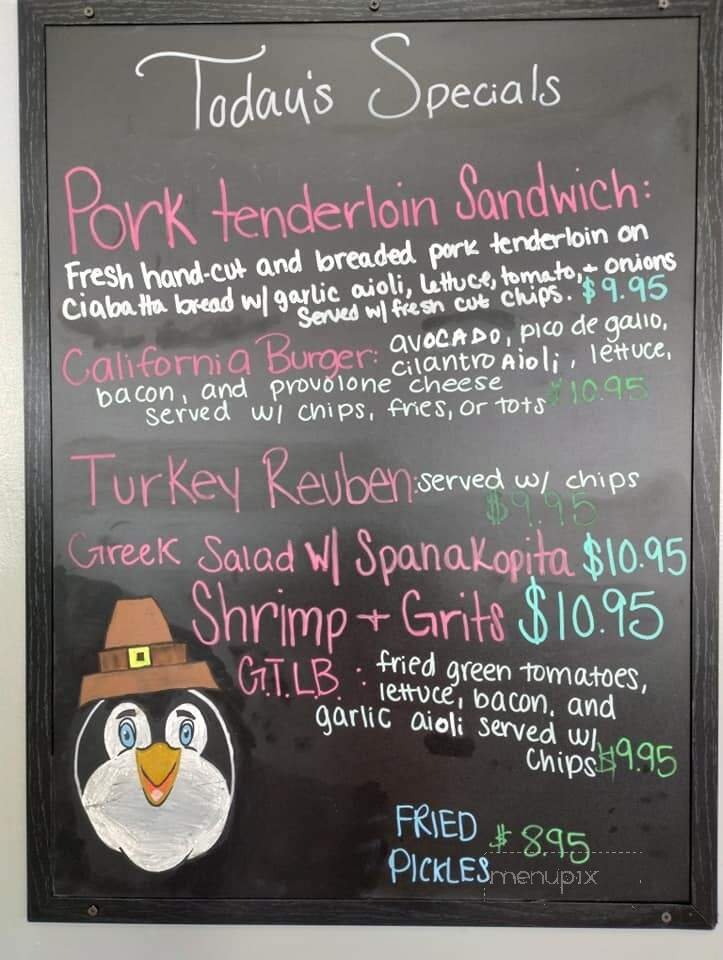 Today's Specials
Pork tenderloin Sandwich:
Fresh hand-cut and breaded pork tenderloin on
Ciabatta bread w/ garlic aioli, lettuce, tomato, + onions
Served w/ fresh cut chips. $9.95
California Burger: avocado, pico de gallo,
cilantro Aioli, lettuce,
bacon, and provolone cheese
served w/ chips, fries, or tots $10.95
Turkey Reuben: served w/ chips
$9.95
Greek Salad w/ Spanakopita $10.95
Shrimp + Grits $10.95
G.T.L.B. : fried green tomatoes,
lettuce, bacon, and
garlic aioli served w/
chips $9.95
FRIED
PICKLES $8.95
menupix